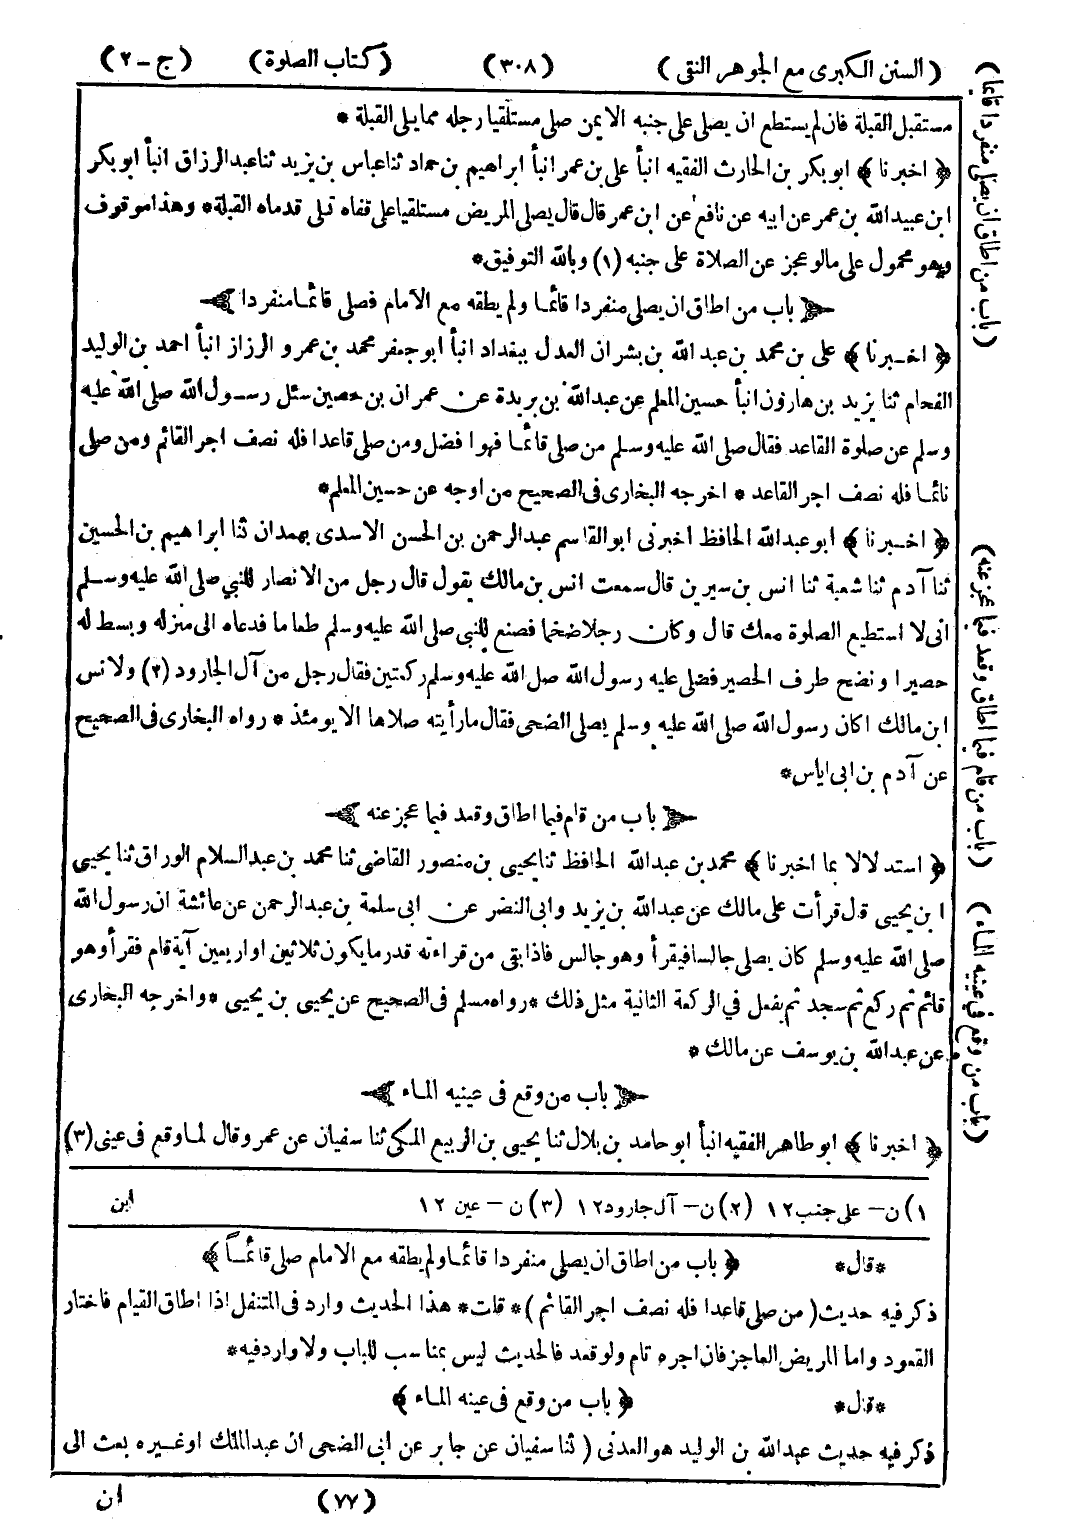 (السنن الكبرى مع الجوهر النقى) (٣٠٨) (كتاب الصلوة) (ج – ٢)
مستقبل القبلة فان لم يستطع ان يصلى على جنبه الايمن صلى مستلقيا رجله مما يلى القبلة *
﴿ اخبرنا ﴾ ابوبكر بن الحارث الفقيه انبأ على بن عمر انبأ ابراهيم بن حماد ثنا عباس بن يزيد ثنا عبد الرزاق انبأ ابوبكر
ابن عبيد الله بن عمر عن ابيه عن نافع عن ابن عمر قال قال يصلى المريض مستلقيا على قفاه تلى قدماه القبلة * وهذا موقوف
وهو محمول على مالو عجز عن الصلاة على جنبه (١) وبالله التوفيق *
باب من اطاق ان يصلى منفردا قائما ولم يطقه مع الامام فصلى قائما منفردا
﴿ اخبرنا ﴾ على بن محمد بن عبد الله بن بشران العدل ببغداد انبأ ابو جعفر محمد بن عمرو الرزاز انبأ احمد بن الوليد
الفحام ثنا يزيد بن هارون انبأ حسين المعلم عن عبد الله بن بريدة عن عمران بن حصين سئل رسول الله صلى الله عليه
وسلم عن صلوة القاعد فقال صلى الله عليه وسلم من صلى قائما فهوا فضل ومن صلى قاعدا فله نصف اجر القائم ومن صلى
نائما فله نصف اجر القاعد * اخرجه البخارى فى الصحيح من اوجه عن حسين المعلم *
﴿ اخبرنا ﴾ ابو عبد الله الحافظ اخبرنى ابو القاسم عبد الرحمن بن الحسن الاسدى بهمدان ثنا ابراهيم بن الحسين
ثنا آدم ثنا شعبة ثنا انس بن سيرين قال سمعت انس بن مالك يقول قال رجل من الانصار للنبي صلى الله عليه وسلم
انى لا استطيع الصلوة معك قال وكان رجلا ضخما فصنع للنبي صلى الله عليه وسلم طعاما فدعاه الى منزله وبسط له
حصيرا ونضح طرف الحصير فصلى عليه رسول الله صلى الله عليه وسلم ركعتين فقال رجل من آل الجارود (٢) ولانس
ابن مالك اكان رسول الله صلى الله عليه وسلم يصلى الضحى فقال مارأيته صلاها الا يومئذ * رواه البخارى فى الصحيح
عن آدم بن ابى اياس *
باب من قام فيما اطاق وقعد فيما عجز عنه
﴿ استدلالا بما اخبرنا ﴾ محمد بن عبد الله الحافظ ثنا يحيى بن منصور القاضى ثنا محمد بن عبد السلام الوراق ثنا يحيى
ابن يحيى قال قرأت على مالك عن عبد الله بن يزيد وابى النضر عن ابى سلمة بن عبد الرحمن عن عائشة ان رسول الله
صلى الله عليه وسلم كان يصلى جالسا فيقرأ وهو جالس فاذا بقى من قراءته قدر ما يكون ثلاثين او اربعين آية قام فقرأ وهو
قائم ثم ركع ثم سجد ثم يفعل في الركعة الثانية مثل ذلك * رواه مسلم فى الصحيح عن يحيى بن يحيى * واخرجه البخارى
عن عبد الله بن يوسف عن مالك *
باب من وقع فى عينيه الماء
﴿ اخبرنا ﴾ ابو طاهر الفقيه انبأ ابو حامد بن بلال ثنا يحيى بن الربيع المكى ثنا سفيان عن عمرو قال لما وقع فى عينى (٣)
١) ن – على جنب ١٢ (٢) ن – آل جارود ١٢ (٣) ن – عين ١٢ ابن
*قال* ﴿ باب من اطاق ان يصلى منفردا قائما ولم يطقه مع الامام صلى قائمًا ﴾
ذكر فيه حديث (من صلى قاعدا فله نصف اجر القائم) * قلت * هذا الحديث وارد فى المتنفل اذا اطاق القيام فاختار
القعود واما المريض العاجز فان اجره تام ولو قعد فالحديث ليس بمناسب للباب ولا وارد فيه *
*قال* ﴿ باب من وقع فى عينه الماء ﴾
ذكر فيه حديث عبد الله بن الوليد هو العدنى (ثنا سفيان عن جابر عن ابى الضحى ان عبد الملك اوغيره بعث الى
(٧٧) ان
(باب من اطاق ان يصلى منفردا قائما)
(باب من قام فيما اطاق وقعد فيما عجز عنه)
(باب من وقع فى عينيه الماء)